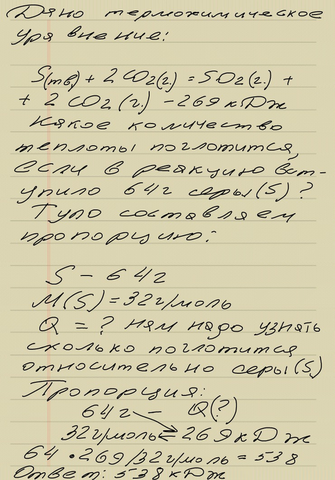 Дано термохимическое
уравнение:
S(тв) + 2CO2(г.) = SO2(г.) +
+ 2CO2(г.) - 269 кДж
Какое количество
теплоты поглотится,
если в реакцию вст-
упило 64г серы(S)?
Тупо составляем
пропорцию:
S - 64г
M(S) = 32г/моль
Q = ? нам надо узнать
сколько поглотится
относительно серы(S)
Пропорция:
64г - Q(?)
32г/моль = 269кДж
64 • 269/32г/моль = 538
Ответ: 538кДж